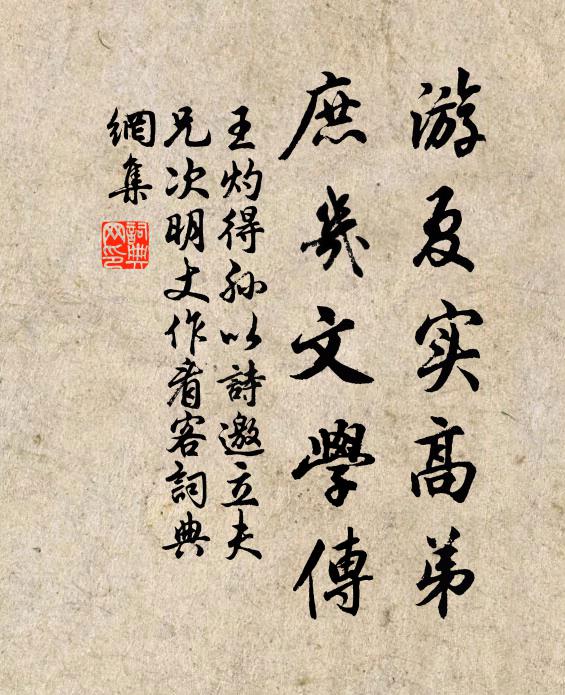 游夏实高弟
庶幾文學傳
王灼得孙以詩邀立夫
兄次明丈作者客詞典
網集
詞典网印